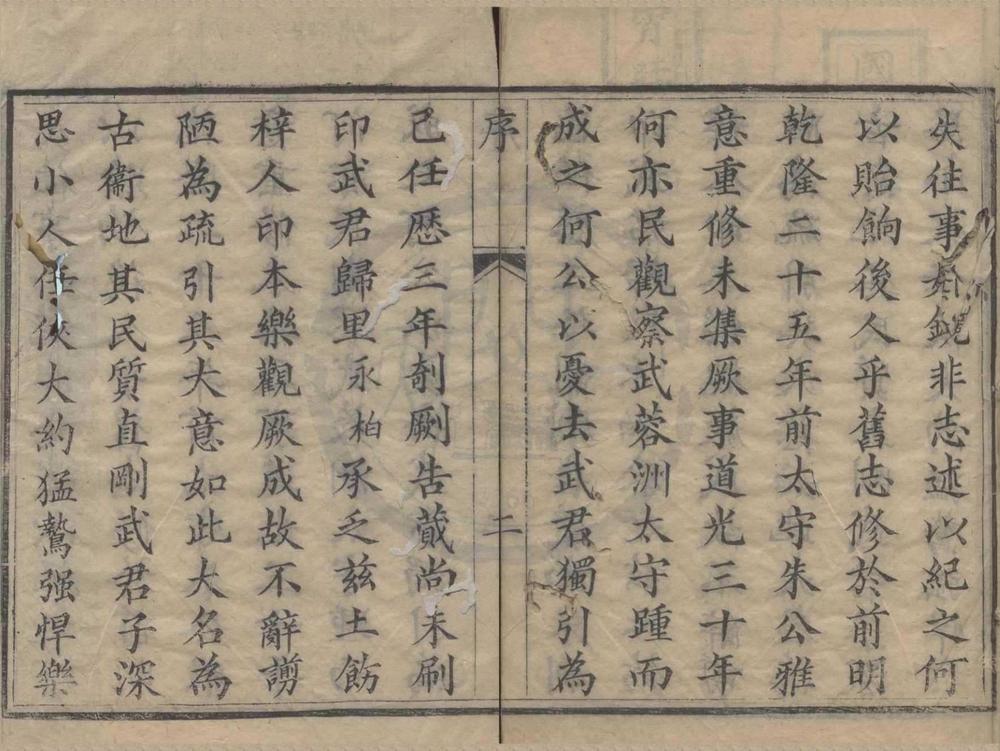 失往事昬鏡非志述以紀之何
以貽餉後人乎舊志修於前明
乾隆二十五年前太守朱公雅
意重修未集厥事道光三十年
何亦民觀察武蓉洲太守踵而
成之何公以憂去武君獨引為
序
二
己任歷三年剞劂告蕆尚未刷
印武君歸里永柏承乏茲土飭
梓人印本樂觀厥成故不辭謭
陋為疏引其大意如此大名為
古衞地其民質直剛武君子深
思小人任俠大約猛鷙强悍樂